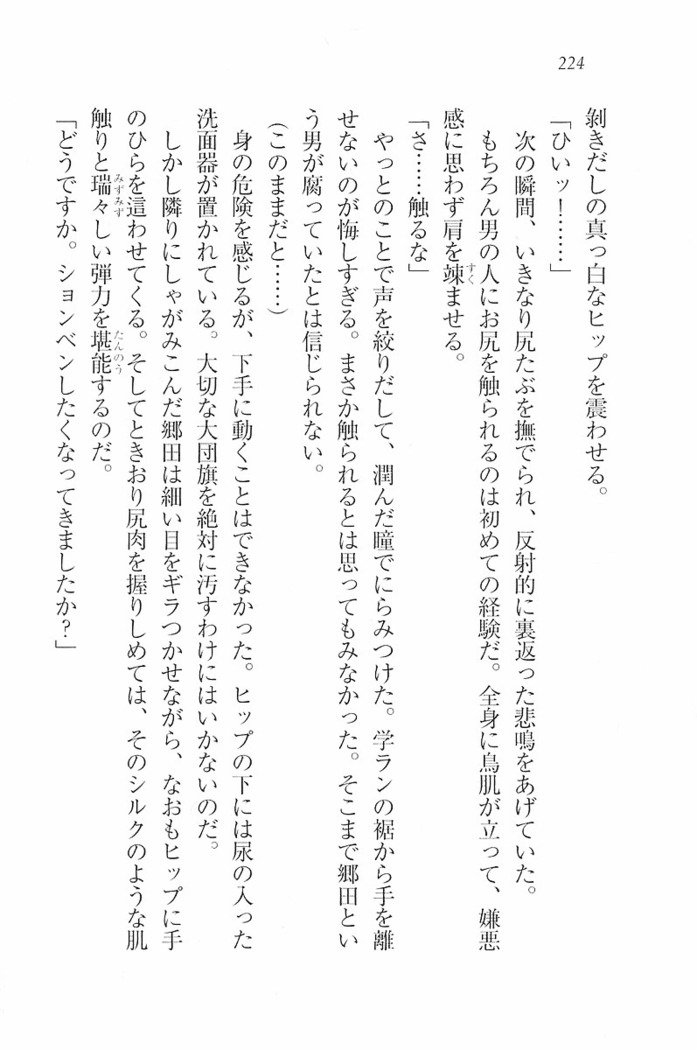 224
剝きだしの真っ白なヒップを震わせる。
「ひいッ！……」
次の瞬間、いきなり尻たぶを撫でられ、反射的に裏返った悲鳴をあげていた。
もちろん男の人にお尻を触られるのは初めての経験だ。全身に鳥肌が立って、嫌悪
感に思わず肩を竦すくませる。
「さ……触るな」
やっとのことで声を絞りだして、潤んだ瞳でにらみつけた。学ランの裾から手を離
せないのが悔しすぎる。まさか触られるとは思ってもみなかった。そこまで郷田とい
う男が腐っていたとは信じられない。
(このままだと……)
身の危険を感じるが、下手に動くことはできなかった。ヒップの下には尿の入った
洗面器が置かれている。大切な大団旗を絶対に汚すわけにはいかないのだ。
しかし隣りにしゃがみこんだ郷田は細い目をギラつかせながら、なおもヒップに手
のひらを這わせてくる。そしてときおり尻肉を握りしめては、そのシルクのような肌
触りと瑞々みずみずしい弾力を堪能たんのうするのだ。
「どうですか。ションベンしたくなってきましたか？」